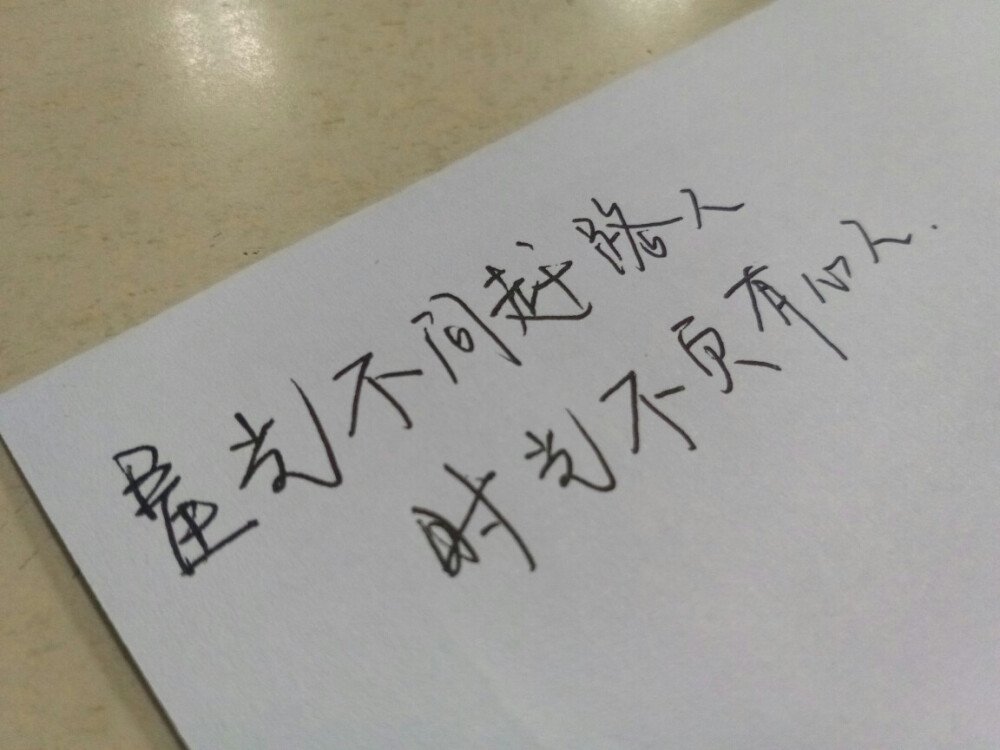 量光不问越路人
时光不负有心人.